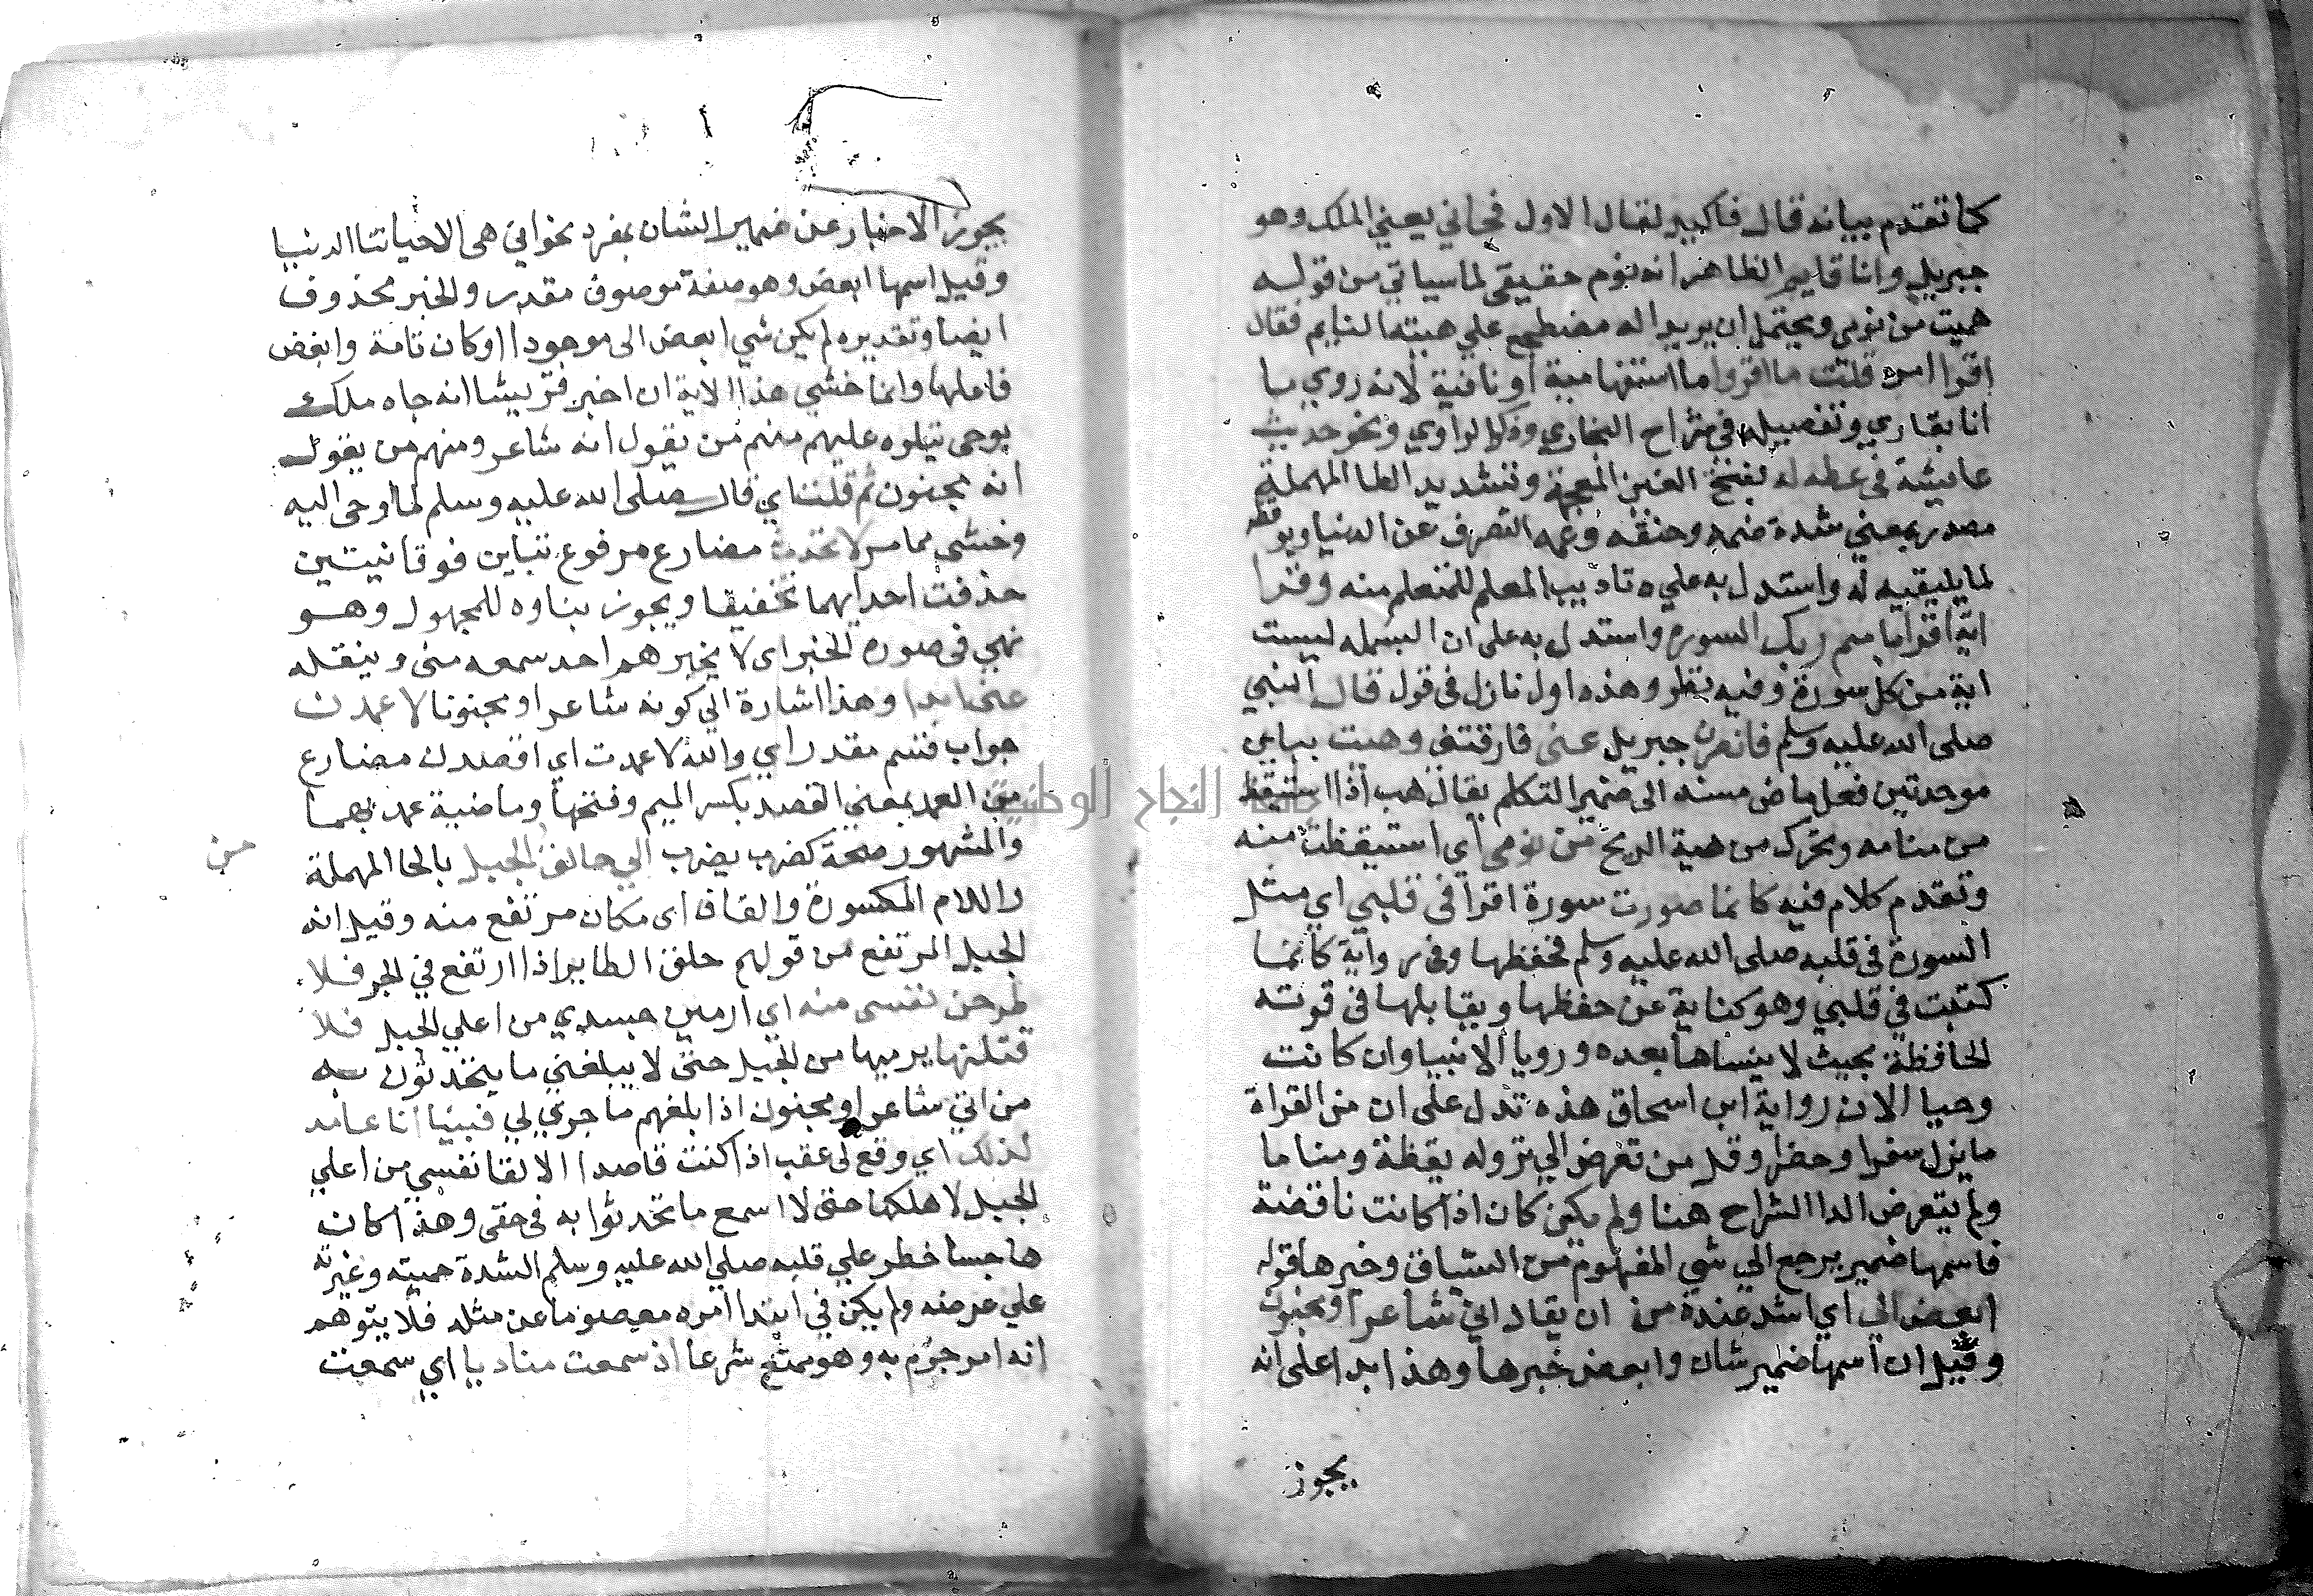 كما تقدم بيانه قال فاكبير لقال الاول فجاني يعني الملك وهو
جبريل وانا قايم الظاهر انه نوم حقيقي لما سياتي من قوله
هبيت من نومي ويحتمل ان يريد انه مضطجع علي هيئة النايم فقال
اقرا قلت ما اقرا وما استفهامية او نافية لانه روي ما
انا بقاري وتفصيله في شراح البخاري ونحو حديث
عايشة في غطه له بفتح الغين المعجمة وتشديد الطا المهملة
مصدر بمعني شدة ضمه وخنقه التصرف عن الدنيا
لما يلقيه له واستدل به علي تاديب المعلم للمتعلم منه وقرا
اية اقرا باسم ربك السورة واستدل به على ان البسمله ليست
اية من كل سورة وفيه نظر وهذه اول نازل في قول قال النبي
صلى الله عليه وسلم فانصرف جبريل عنى فارقتني وهببت ببابين
موحدتين فعل ماض مسند الى ضمير التكلم يقال هب اذا استيقظ
من منامه وتحرك من هبة الريح من نومي اي استيقظت منه
وتقدم كلام فيه كانما صورت سورة اقرا في قلبي اي مثل
السورة في قلبه صلى الله عليه وسلم فحفظها وفي رواية كانما
كتبت في قلبي وهو كناية عن حفظها ويقابلها في قوته
الحافظة بحيث لا ينساها بعده ورويا الانبيا وان كانت
وحيا الا ان رواية ابن اسحاق هذه تدل على ان من القراة
ما ينزل سفرا وحضرا وقل من تعرض الي نزوله يقظة ومناما
ولم يتعرض الشراح هنا ولم يكن كان اذا كانت ناقصة
فاسمها ضمير يرجع الي شي المفهوم من السياق وخبرها قوله
ابغض الي اي اشد عنده من ان يقال اني شاعر او مجنون
وقيل ان اسمها ضمير شان وابغض خبرها وهذا على انه
يجوز
يجوز الاخبار عن ضمير الشان بمفرد نحو ان هي الا حياتنا الدنيا
وقيل اسمها ابغض وهو صفة موصوف مقدر والخبر محذوف
ايضا وتقديره لم يكن شي ابغض الى موجودا او كان تامة وابغض
فاعلها وانما خشي هذا لانه ان اخبر قريشا انه جاه ملك
يوحى يتلوه عليهم منهم من يقول انه شاعر ومنهم من يقول
انه مجنون ثم قلت اي قال صلى الله عليه وسلم لما اوحى اليه
وخشي مما مر لا تحدث مضارع مرفوع بتاين فوقانيتين
حذفت احدايهما تخفيفا ويجوز بناوه للمجهول وهو
نهي في صورة الخبر اى لا يخبرهم احد سمعه منى وينقله
عني ابدا وهذا اشارة الي كونه شاعرا او مجنونا لاعمدن
جواب قسم مقدر اي والله لاعمدت اي اقصدن مضارع
من العمد بمعني القصد بكسر الميم وفتحها وماضية عمد بهما
والمشهور صحة كضرب يضرب الي حالق الجبل بالحا المهملة
من
واللام المكسورة والقاف اى مكان مرتفع منه وقيل انه
الجبل المرتفع من قولهم حلق الطاير اذا ارتفع في الجو فلا
طرحن نفسى منه اي ارمين جسدي من اعلي الجبل فلا
قتلنها يرميها من الجبل حتى لا يبلغني ما يتحدثون به
من اني شاعر او مجنون اذا بلغهم ما جرى لي فبينا انا عامد
لذلك اي وقع لى عقب اذا كنت قاصدا الالقا نفسي من اعلي
الجبل لاهلكها حتى لا اسمع ما تحدثوا به في حقي وهذا كان
هاجسا خطر علي قلبه صلي الله عليه وسلم لشدة حميته وغيرته
علي عرضه ولم يكن في ابتدا امره معصوما عن مثله فلا يتوهم
انه امر جزم به وهو ممتنع شرعا اذ سمعت مناديا اي سمعت
جامعة النجاح الوطنية